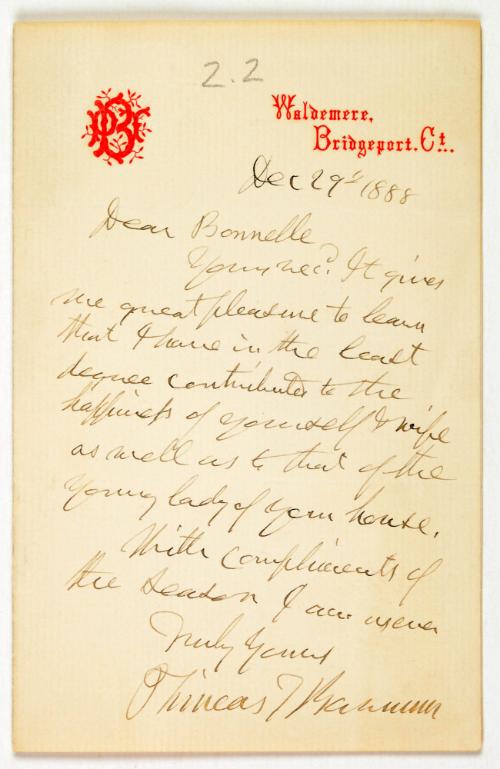 2.2
PB
Waldemere,
Bridgeport. Ct.
Dec 29' 1888
Dear Bonnelle,
Yours rec'd. It gives
me great pleasure to learn
that I have in the least
degree contributed to the
happiness of yourself & wife
as well as to that of the
young lady of your house.
With compliments of
the season I am as ever
Truly Yours
Phineas T Barnum